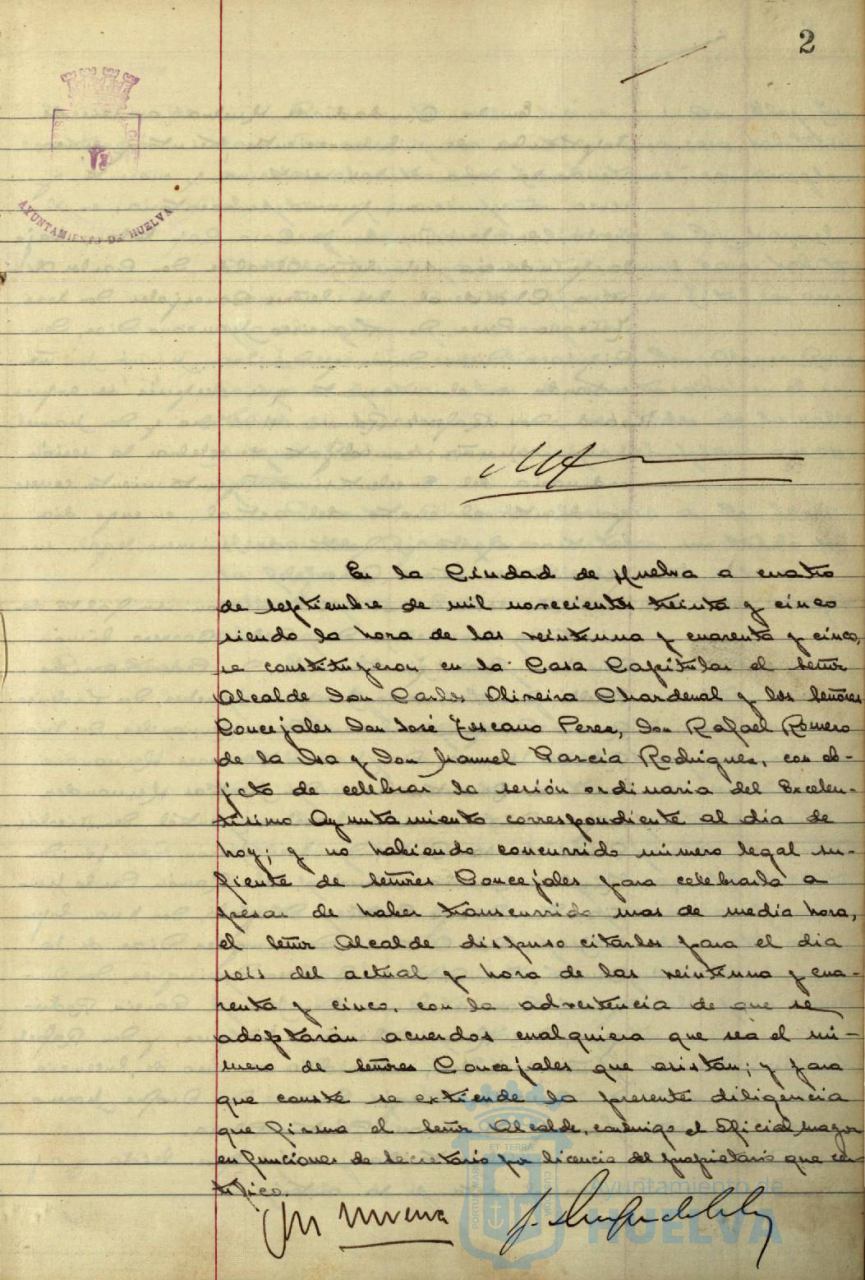 2
AYUNTAMIENTO DE HUELVA
En la Ciudad de Huelva a cuatro
de septiembre de mil novecientos treinta y cinco
siendo la hora de las veintiuna y cuarenta y cinco,
se constituyeron en la Casa Capitular el señor
Alcalde Don Carlos Oliveira Chardenal y los señores
Concejales Don José Toscano Perez, Don Rafael Romero
de la Isa y Don Manuel García Rodriguez, con ob-
jeto de celebrar la sesión ordinaria del Excelen-
tísimo Ayuntamiento correspondiente al dia de
hoy; y no habiendo concurrido número legal su-
ficiente de señores Concejales para celebrarla a
pesar de haber transcurrido mas de media hora,
el señor Alcalde dispuso citarlos para el dia
seis del actual y hora de las veintiuna y cua-
renta y cinco, con la advertencia de que se
adoptarán acuerdos cualquiera que sea el nú-
mero de señores Concejales que asistan; y para
que conste se extiende la presente diligencia
que firma el señor Alcalde, conmigo el Oficial mayor
en funciones de secretario por licencia del propietario que cer-
tifico.
Ayuntamiento de
HUELVA